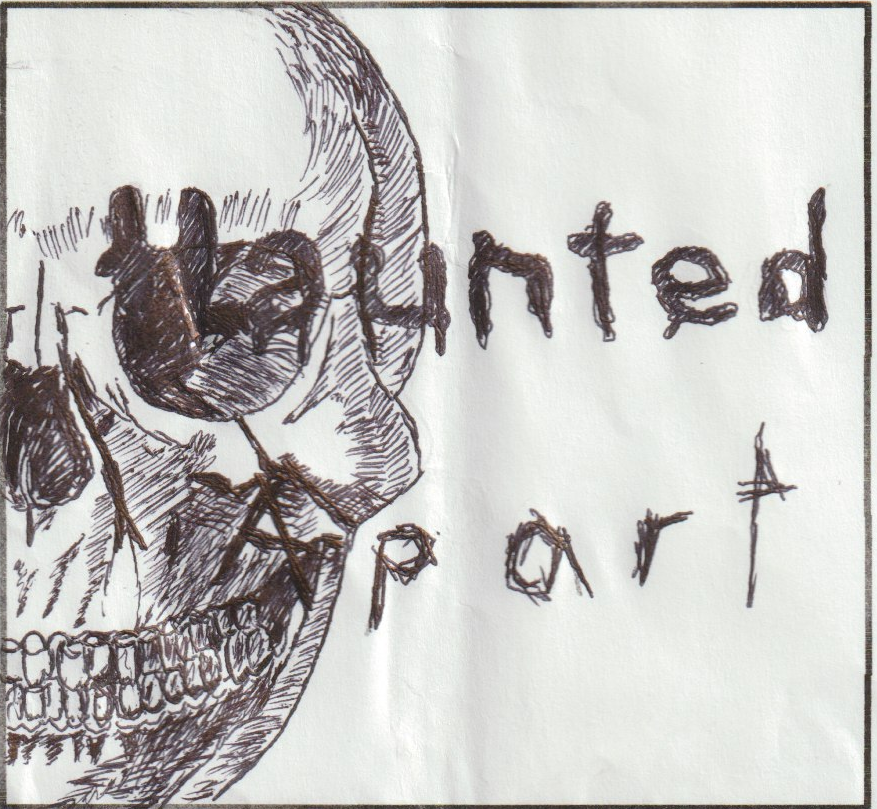 Haunted
Apart